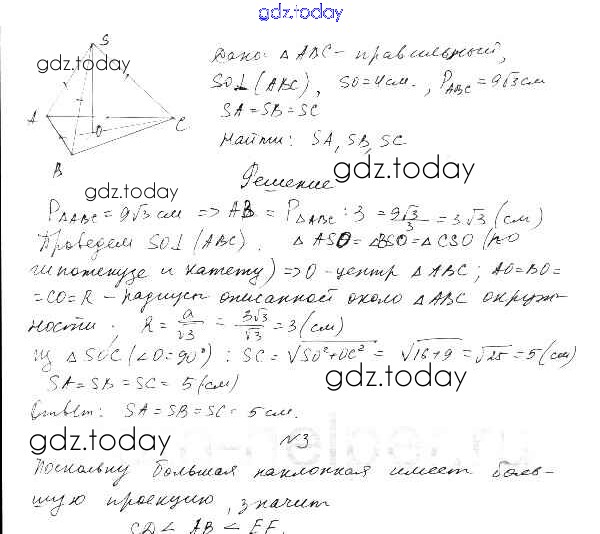 gdz.today
S
gdz.today
Дано: △ABC - правильный,
SO⊥(ABC), SO=4см., P_ABC=9√3см
A
O
C
SA=SB=SC
B
Найти: SA, SB, SC
gdz.today
Решение
gdz.today
P△ABC=9√3 см => AB = P△ABC:3 = 9√3/3 = 3√3 (см)
Проведем SO⊥(ABC). △ASO=△BSO=△CSO (по
гипотенузе и катету) => O - центр △ABC; AO=BO=
=CO=R - радиусы описанной около △ABC окруж-
ности; R = a/√3 = 3√3/√3 = 3 (см)
Из △SOC (∠O=90°): SC=√SO²+OC² = √16+9 = √25 = 5 (см)
SA=SB=SC=5(см)
gdz.today
Ответ: SA=SB=SC=5см.
gdz.today
N3
Поскольку большая наклонная имеет боль-
шую проекцию, значит
CD < AB < EF.